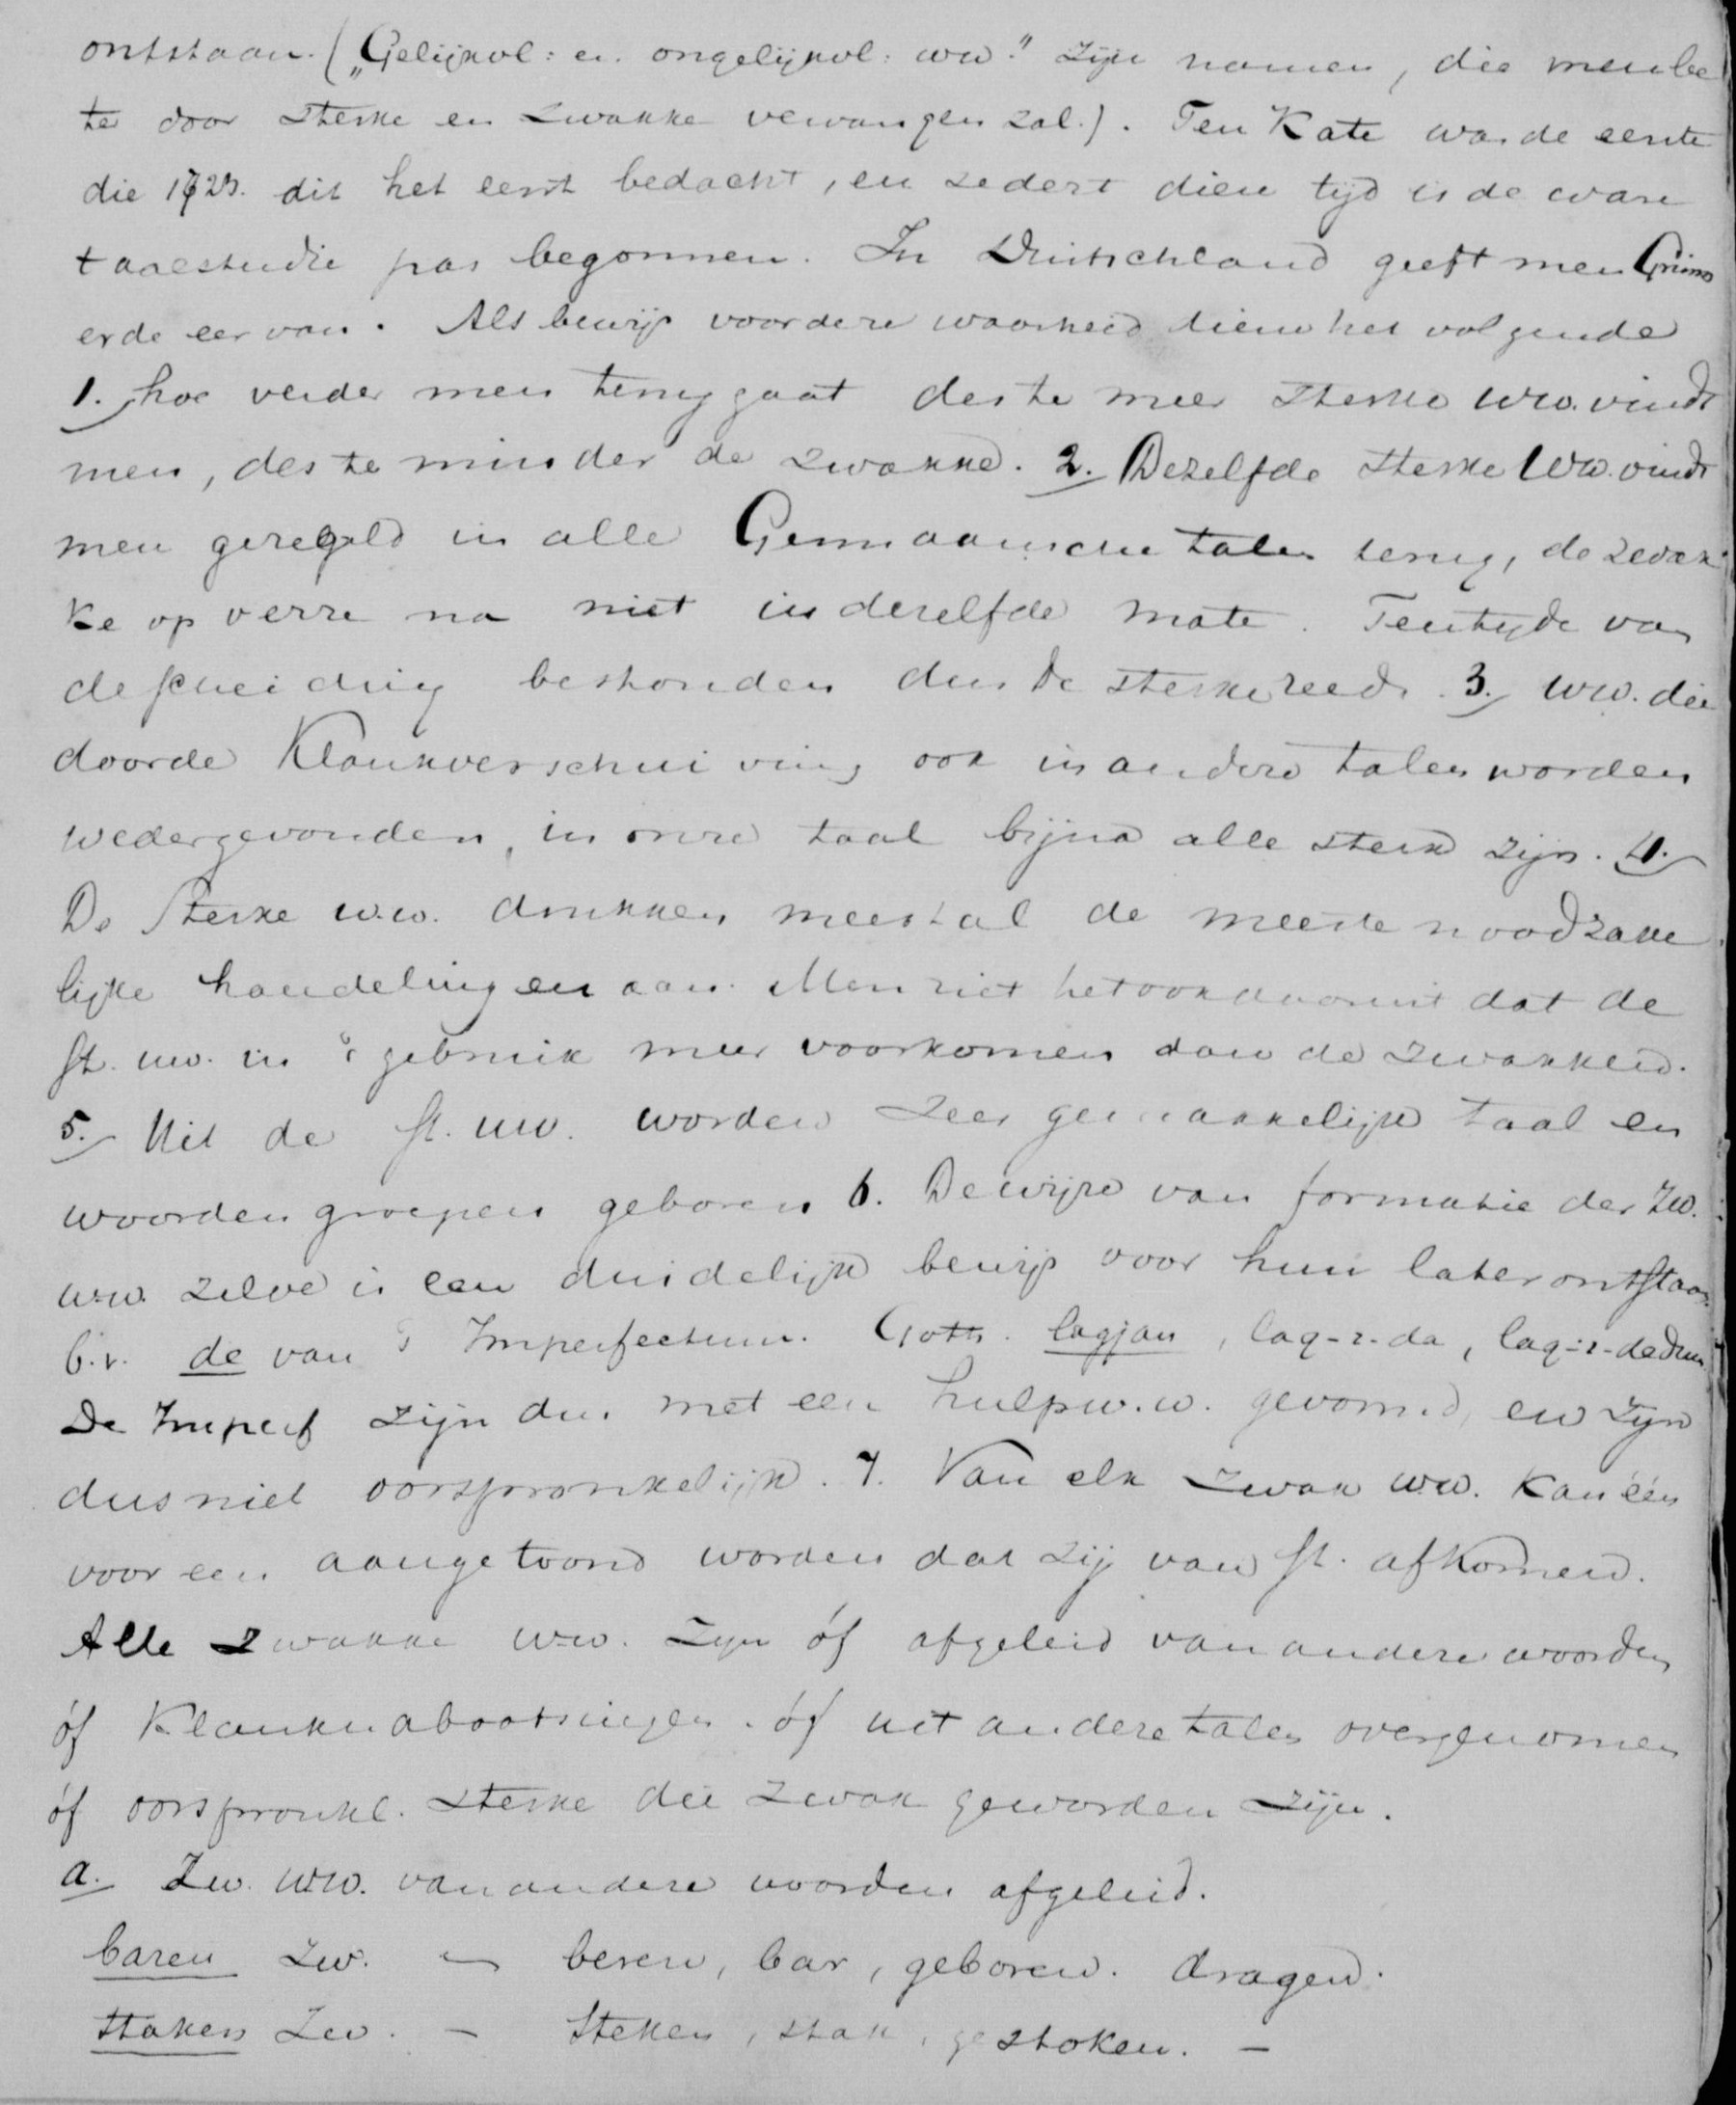 ontstaan. („Gelijkvl: en ongelijkvl: ww." zijn namen, die men be
ter door sterke en zwakke vervangen zal.). Ten Kate was de eerste
die 1723. dit het eerst bedacht, en zedert dien tijd is de ware
taalstudie pas begonnen. In Duitschland geeft men Grimm
er de eer van. Als bewijs voor deze waarheid diene het volgende
1. hoe verder men terug gaat des te meer sterke ww. vindt
men, des te minder de zwakke. 2. Dezelfde sterke ww. vindt
men geregeld in alle Germaansche talen terug, de zwak
ke op verre na niet in dezelfde mate. Ten tijde van
de scheiding bestonden dus de sterke reeds. 3. ww. die
door de Klankverschuiving ook in andere talen worden
wedergevonden, in onze taal bijna alle sterk zijn. 4.
De sterke w.w. drukken meestal de meeste noodzake
lijke handelingen aan. Men ziet het ook daaruit dat de
st. ww. in 't gebruik meer voorkomen dan de zwakken.
5. Uit de st. ww. worden zeer gemakkelijk taal en
woorden groepen geboren 6. De wijze van formatie der zw.
w.w. zelve is een duidelijk bewijs voor hun later ontstaan.
b.v. de van 't Imperfectum. Goth. lagjan, lag-i-da, lag-i-dedum.
De Imperf zijn dus met een hulpw.w. gevormd, en zijn
dus niet oorspronkelijk. 7. Van elk zwak w.w. kan één
voor een aangetoond worden dat zij van st. afkomen.
Alle zwakke w.w. zijn óf afgeleid van andere woorden
óf Klanknabootsingen. óf uit andere talen overgenomen
óf oorspronkl. sterke die zwak geworden zijn.
a. Zw. w.w. van andere woorden afgeleid.
baren zw. — beren, bar, geboren. dragen.
staken zw. — steken, stak, gestoken. —